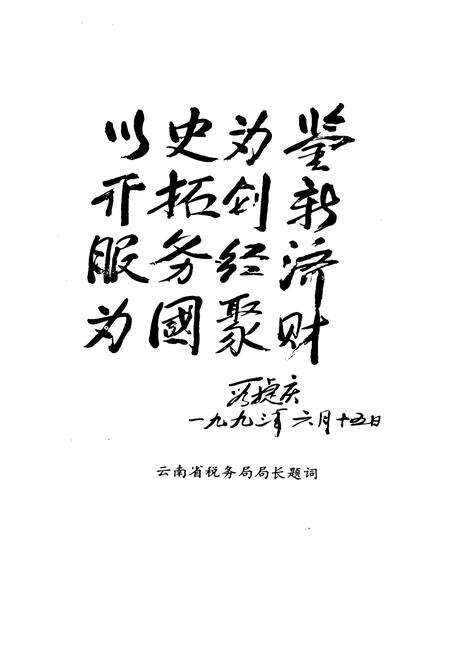 以史为鉴
开拓创新
服务经济
为國聚财
段捷庆
一九九三年六月十五日
云南省税务局局长题词